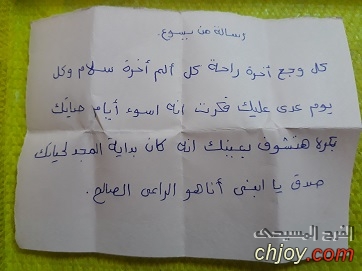 رسالة من يسوع.
كل وجع أخرة راحة كل ألم أخرة سلام وكل
يوم عدى عليك فكرت انه اسوء أيام حياتك
بكرة هتشوف بعينك انه كان بداية المجد لحياتك
صدق يا ابنى أنا هو الراعى الصالح.
الفرح المسيحى
chjoy.com